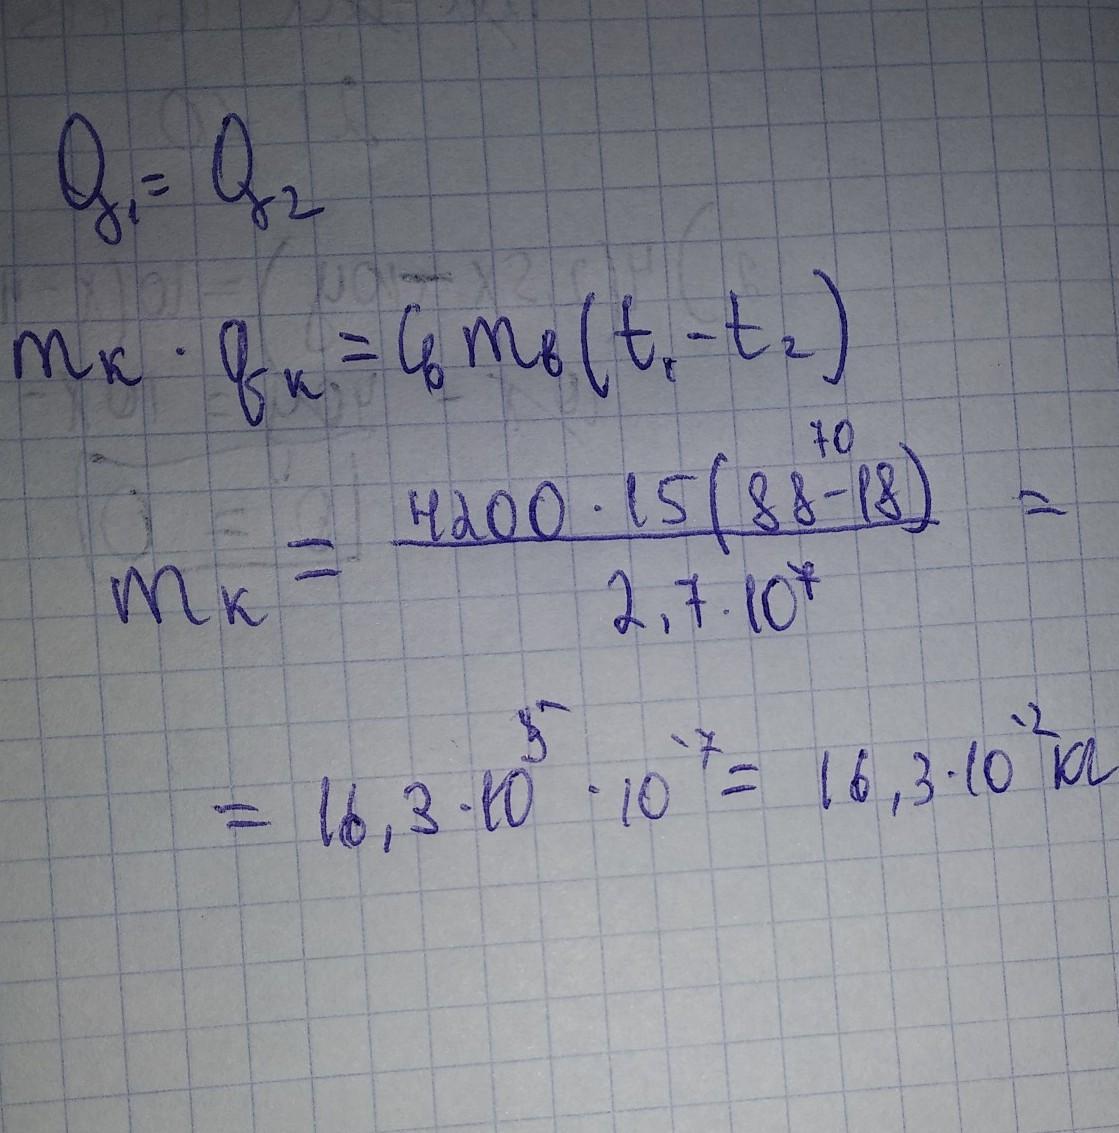 Q₁ = Q₂
mк · qк = Cв mв (t₁ - t₂)
70
mк = 4200 · 15 (88 - 18) / 2,7 · 10⁷ =
= 16,3 · 10⁵ · 10⁻⁷ = 16,3 · 10⁻² кг